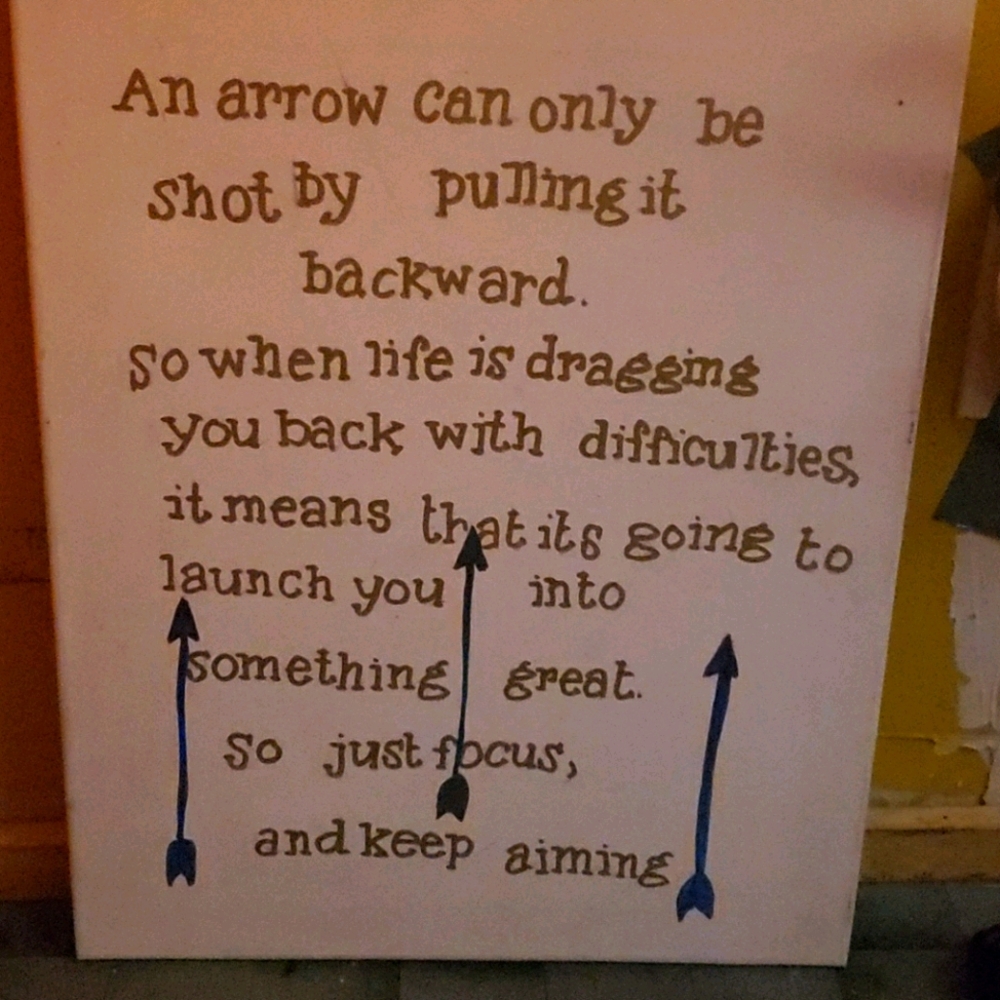 An arrow can only be
shot by pulling it
backward.
So when life is dragging
you back with difficulties,
it means that its going to
launch you into
something great.
So just focus,
and keep aiming